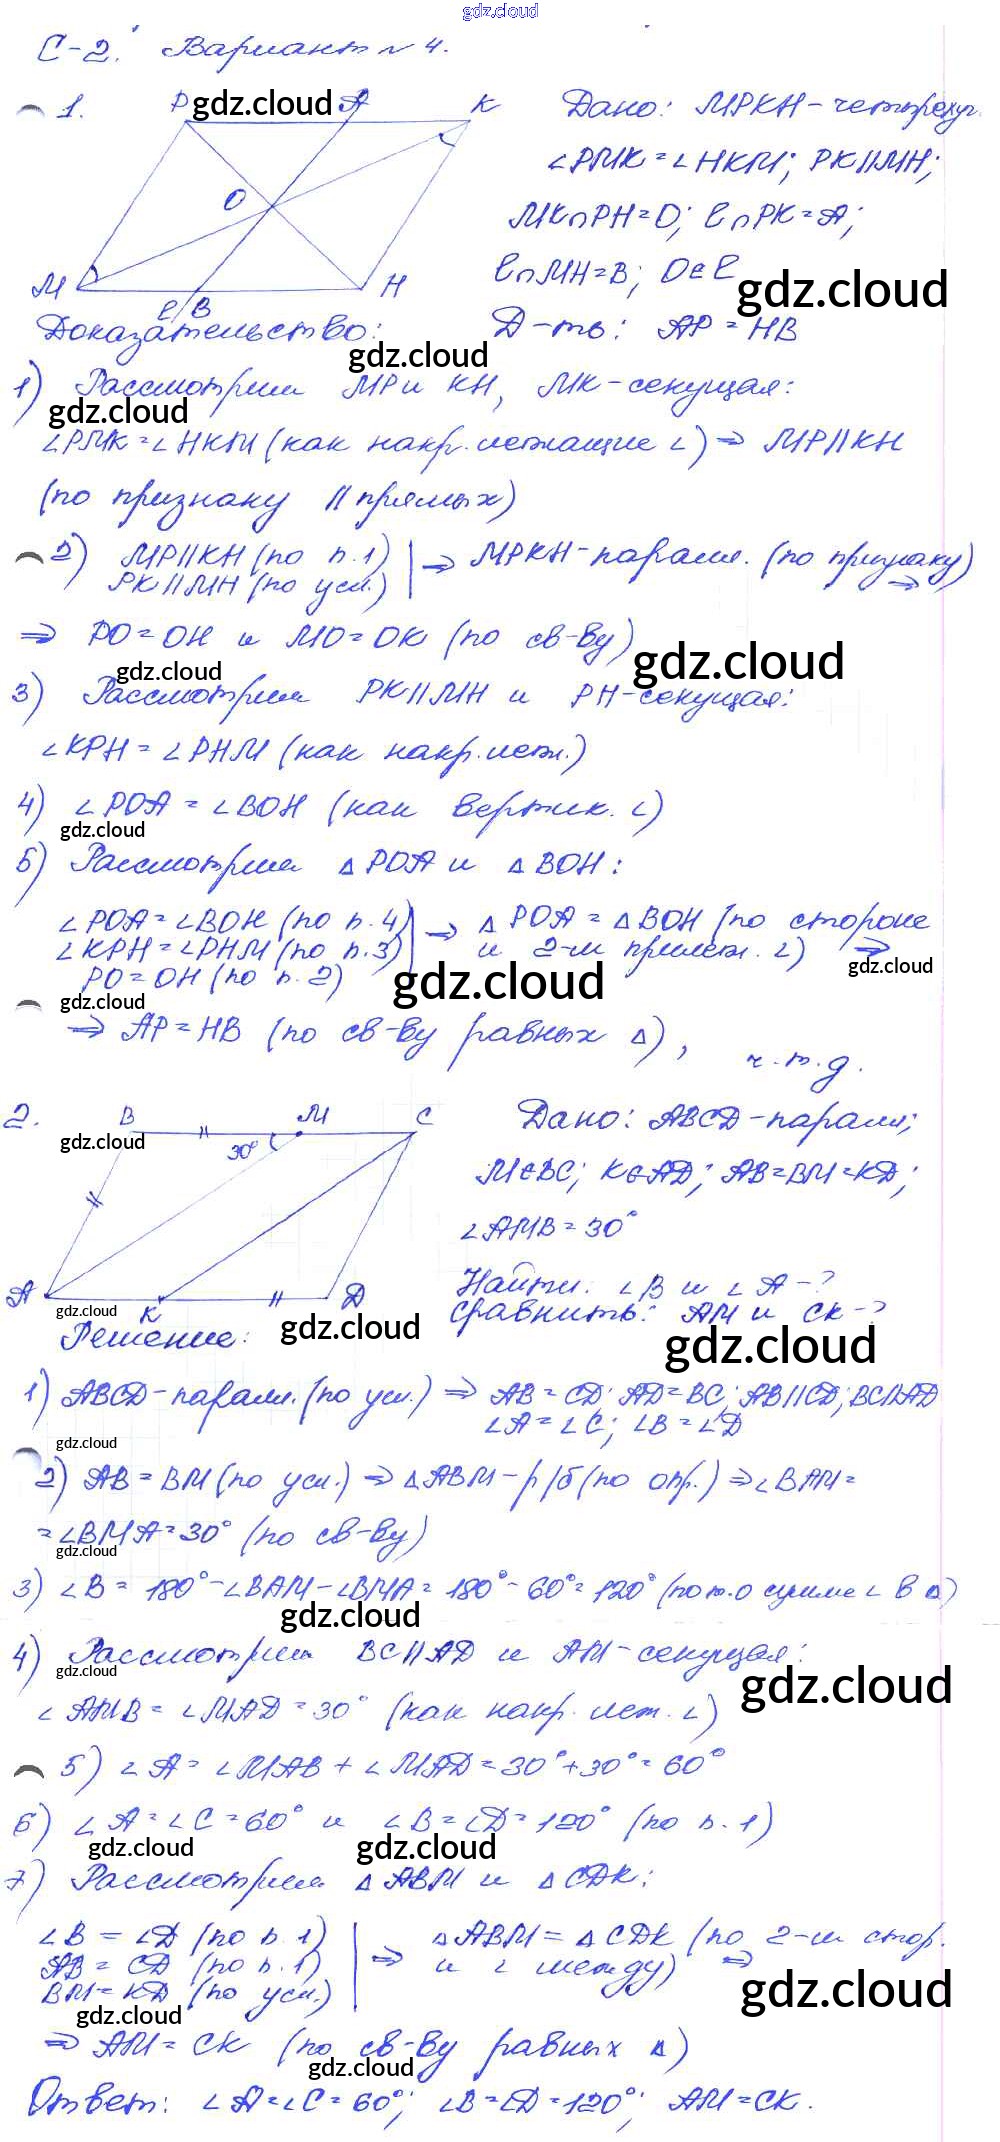 gdz.cloud
С-2. Вариант № 4.
1. P gdz.cloud A K
O
M H
ℓ B
Дано: MPKH - четырехуг.
∠PMK = ∠HKM; PK∥MH;
MK∩PH=O; ℓ∩PK=A;
ℓ∩MH=B; O∈ℓ
gdz.cloud
Доказательство: Д-ть: AP=HB
gdz.cloud
1) Рассмотрим MP и KH, MK - секущая:
gdz.cloud
∠PMK = ∠HKM (как накр. лежащие ∠) ⇒ MP∥KH
(по признаку ∥ прямых)
2) MP∥KH (по п.1) | ⇒ MPKH - паралл. (по признаку) ⇒
PK∥MH (по усл.)
⇒ PO=OH и MO=OK (по св-ву)
gdz.cloud gdz.cloud
3) Рассмотрим PK∥MH и PH - секущая:
∠KPH = ∠PHM (как накр. леж.)
4) ∠POA = ∠BOH (как вертик. ∠)
gdz.cloud
5) Рассмотрим △POA и △BOH:
∠POA=∠BOH (по п.4) | ⇒ △POA = △BOH (по стороне
∠KPH=∠PHM (по п.3) и 2-м прилеж. ∠) ⇒
PO=OH (по п.2)
gdz.cloud gdz.cloud
gdz.cloud
⇒ AP=HB (по св-ву равных △), ч.т.д.
2. B M C
gdz.cloud 30°
A K D
Дано: ABCD - паралл;
M∈BC; K∈AD; AB=BM=KD;
∠AMB=30°
Найти: ∠B и ∠A - ?
Сравнить: AM и CK - ?
gdz.cloud
Решение: gdz.cloud gdz.cloud
1) ABCD - паралл. (по усл.) ⇒ AB=CD; AD=BC; AB∥CD; BC∥AD
∠A=∠C; ∠B=∠D
gdz.cloud
2) AB=BM (по усл.) ⇒ △ABM - р/б (по опр.) ⇒ ∠BAM=
=∠BMA=30° (по св-ву)
gdz.cloud
3) ∠B = 180°-∠BAM-∠BMA = 180°-60°=120° (по т. о сумме ∠ в △)
gdz.cloud
4) Рассмотрим BC∥AD и AM - секущая:
gdz.cloud gdz.cloud
∠AMB = ∠MAD = 30° (как накр. леж. ∠)
5) ∠A = ∠MAB + ∠MAD = 30°+30°=60°
6) ∠A=∠C=60° и ∠B=∠D=120° (по п.1)
gdz.cloud gdz.cloud
7) Рассмотрим △ABM и △CDK:
∠B = ∠D (по п.1) | ⇒ △ABM = △CDK (по 2-м стор.
AB = CD (по п.1) и ∠ между) ⇒
BM=KD (по усл.)
gdz.cloud gdz.cloud
⇒ AM=CK (по св-ву равных △)
gdz.cloud
Ответ: ∠A=∠C=60°; ∠B=∠D=120°; AM=CK.